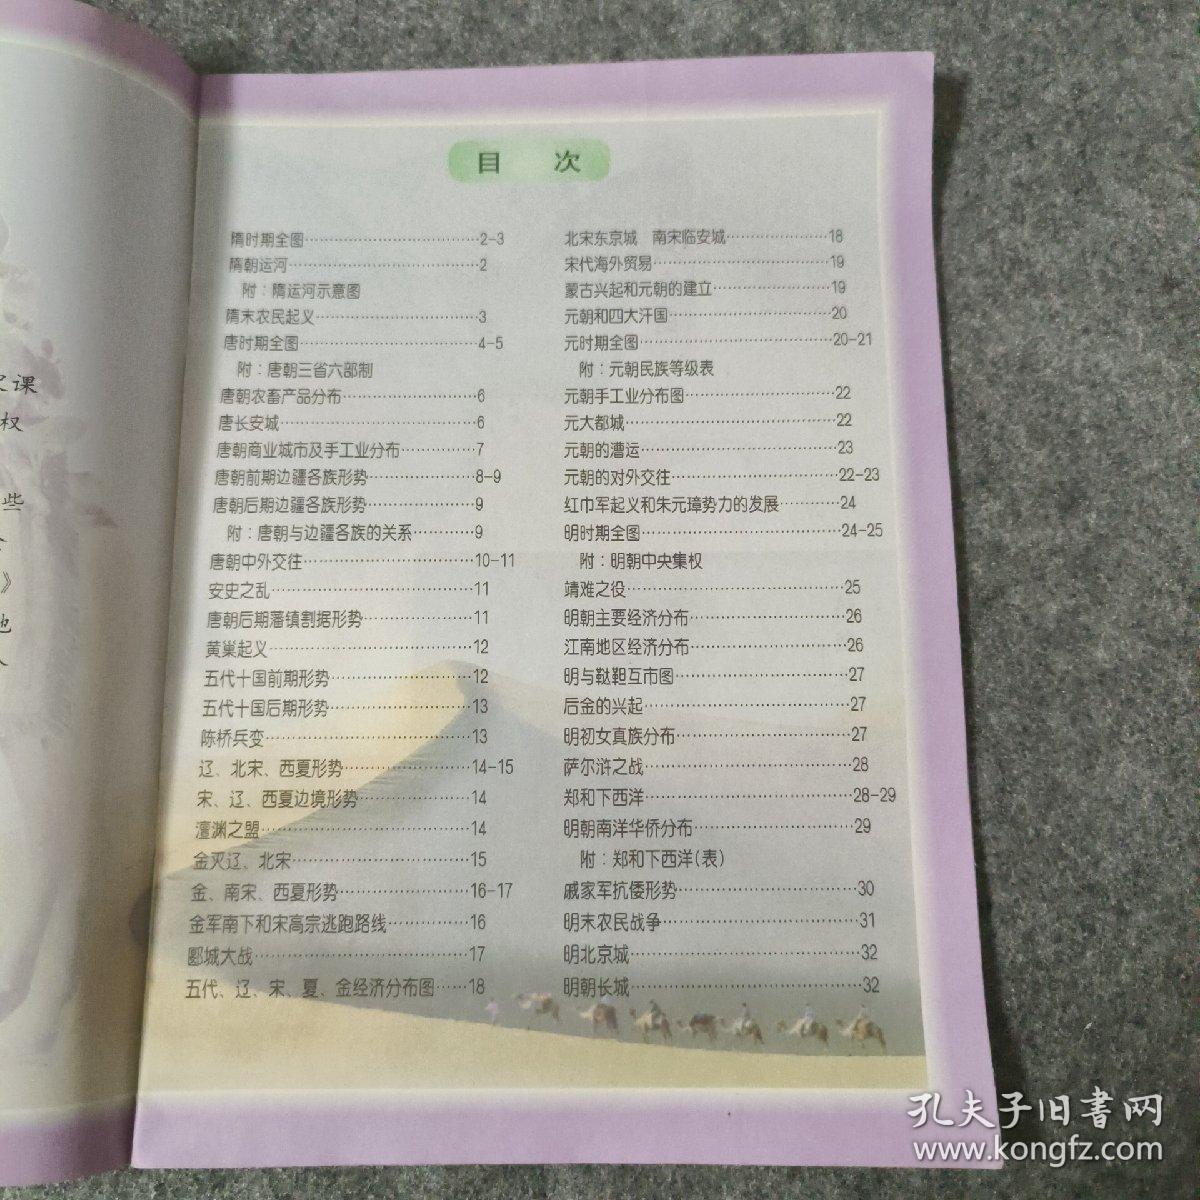 目 次
隋时期全图……2-3
隋朝运河……2
附：隋运河示意图
隋末农民起义……3
唐时期全图……4-5
附：唐朝三省六部制
唐朝农畜产品分布……6
唐长安城……6
唐朝商业城市及手工业分布……7
唐朝前期边疆各族形势……8-9
唐朝后期边疆各族形势……9
附：唐朝与边疆各族的关系……9
唐朝中外交往……10-11
安史之乱……11
唐朝后期藩镇割据形势……11
黄巢起义……12
五代十国前期形势……12
五代十国后期形势……13
陈桥兵变……13
辽、北宋、西夏形势……14-15
宋、辽、西夏边境形势……14
澶渊之盟……14
金灭辽、北宋……15
金、南宋、西夏形势……16-17
金军南下和宋高宗逃跑路线……16
郾城大战……17
五代、辽、宋、夏、金经济分布图……18
北宋东京城 南宋临安城……18
宋代海外贸易……19
蒙古兴起和元朝的建立……19
元朝和四大汗国……20
元时期全图……20-21
附：元朝民族等级表
元朝手工业分布图……22
元大都城……22
元朝的漕运……23
元朝的对外交往……22-23
红巾军起义和朱元璋势力的发展……24
明时期全图……24-25
附：明朝中央集权
靖难之役……25
明朝主要经济分布……26
江南地区经济分布……26
明与鞑靼互市图……27
后金的兴起……27
明初女真族分布……27
萨尔浒之战……28
郑和下西洋……28-29
明朝南洋华侨分布……29
附：郑和下西洋(表)
戚家军抗倭形势……30
明末农民战争……31
明北京城……32
明朝长城……32
课
权
些
》
孔夫子旧书网
www.kongfz.com